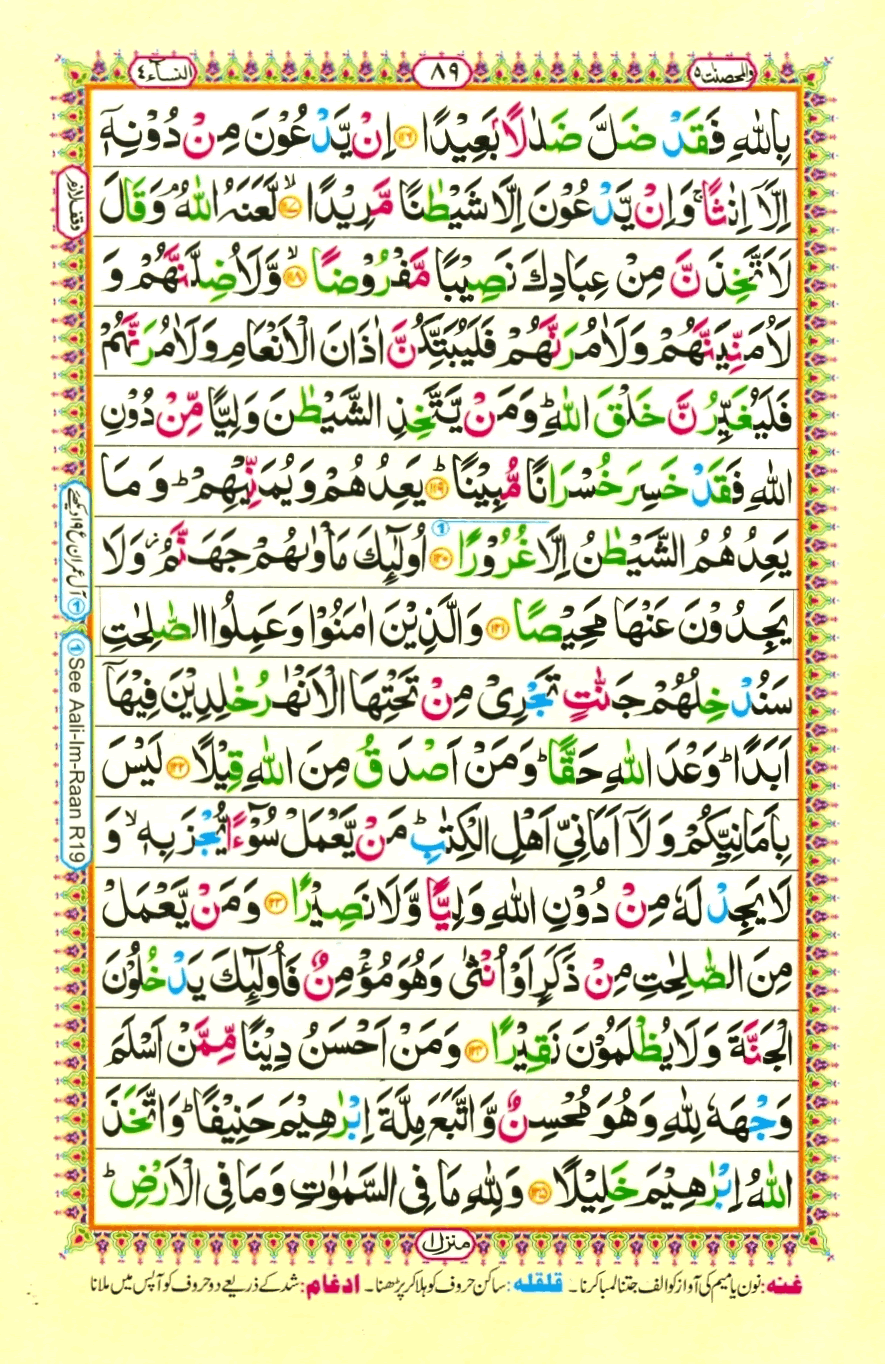 والمحصنت٥
٨٩
النسآء٤
بِاللّٰهِ فَقَدۡ ضَلَّ ضَلٰلًاۢ بَعِيۡدًا ﴿۱۱۶﴾ اِنۡ يَّدۡعُوۡنَ مِنۡ دُوۡنِهٖۤ
اِلَّاۤ اِنٰثًا ۚ وَاِنۡ يَّدۡعُوۡنَ اِلَّا شَيۡطٰنًا مَّرِيۡدًا ۙ﴿۱۱۷﴾ لَّعَنَهُ اللّٰهُ ۘ وَقَالَ
لَاَتَّخِذَنَّ مِنۡ عِبَادِكَ نَصِيۡبًا مَّفۡرُوۡضًا ۙ﴿۱۱۸﴾ وَّلَاُضِلَّنَّهُمۡ وَ
لَاُمَنِّيَنَّهُمۡ وَلَاٰمُرَنَّهُمۡ فَلَيُبَتِّكُنَّ اٰذَانَ الۡاَنۡعَامِ وَلَاٰمُرَنَّهُمۡ
فَلَيُغَيِّرُنَّ خَلۡقَ اللّٰهِ ؕ وَمَنۡ يَّتَّخِذِ الشَّيۡطٰنَ وَلِيًّا مِّنۡ دُوۡنِ
اللّٰهِ فَقَدۡ خَسِرَ خُسۡرَانًا مُّبِيۡنًا ؕ﴿۱۱۹﴾ يَعِدُهُمۡ وَيُمَنِّيۡهِمۡ ؕ وَمَا
يَعِدُهُمُ الشَّيۡطٰنُ اِلَّا غُرُوۡرًا ﴿۱۲۰﴾ اُولٰٓئِكَ مَاۡوٰٮهُمۡ جَهَـنَّمُ وَلَا
يَجِدُوۡنَ عَنۡهَا مَحِيۡصًا ﴿۱۲۱﴾ وَالَّذِيۡنَ اٰمَنُوۡا وَعَمِلُوا الصّٰلِحٰتِ
سَنُدۡخِلُهُمۡ جَنّٰتٍ تَجۡرِىۡ مِنۡ تَحۡتِهَا الۡاَنۡهٰرُ خٰلِدِيۡنَ فِيۡهَاۤ
اَبَدًا ؕ وَعۡدَ اللّٰهِ حَقًّا ؕ وَمَنۡ اَصۡدَقُ مِنَ اللّٰهِ قِيۡلًا ﴿۱۲۲﴾ لَيۡسَ
بِاَمَانِيِّكُمۡ وَلَاۤ اَمَانِىِّ اَهۡلِ الۡكِتٰبِ ؕ مَنۡ يَّعۡمَلۡ سُوۡٓءًا يُّجۡزَ بِهٖ ۙ وَ
لَا يَجِدۡ لَهٗ مِنۡ دُوۡنِ اللّٰهِ وَلِيًّا وَّلَا نَصِيۡرًا ﴿۱۲۳﴾ وَمَنۡ يَّعۡمَلۡ
مِنَ الصّٰلِحٰتِ مِنۡ ذَكَرٍ اَوۡ اُنۡثٰى وَهُوَ مُؤۡمِنٌ فَاُولٰٓئِكَ يَدۡخُلُوۡنَ
الۡجَـنَّةَ وَلَا يُظۡلَمُوۡنَ نَقِيۡرًا ﴿۱۲۴﴾ وَمَنۡ اَحۡسَنُ دِيۡنًا مِّمَّنۡ اَسۡلَمَ
وَجۡهَهٗ لِلّٰهِ وَهُوَ مُحۡسِنٌ وَّاتَّبَعَ مِلَّةَ اِبۡرٰهِيۡمَ حَنِيۡفًا ؕ وَاتَّخَذَ
اللّٰهُ اِبۡرٰهِيۡمَ خَلِيۡلًا ﴿۱۲۵﴾ وَلِلّٰهِ مَا فِى السَّمٰوٰتِ وَمَا فِى الۡاَرۡضِ ؕ
وقف لازم
① آل عمران ع ١٩ دیکھئے
① See Aali-Im-Raan R19
منزل۱
غنه: نون یا میم کی آواز کو الف جتنا لمبا کرنا۔ قلقله: ساکن حروف کو ہلا کر پڑھنا۔ ادغام: شد کے ذریعے دو حروف کو آپس میں ملانا